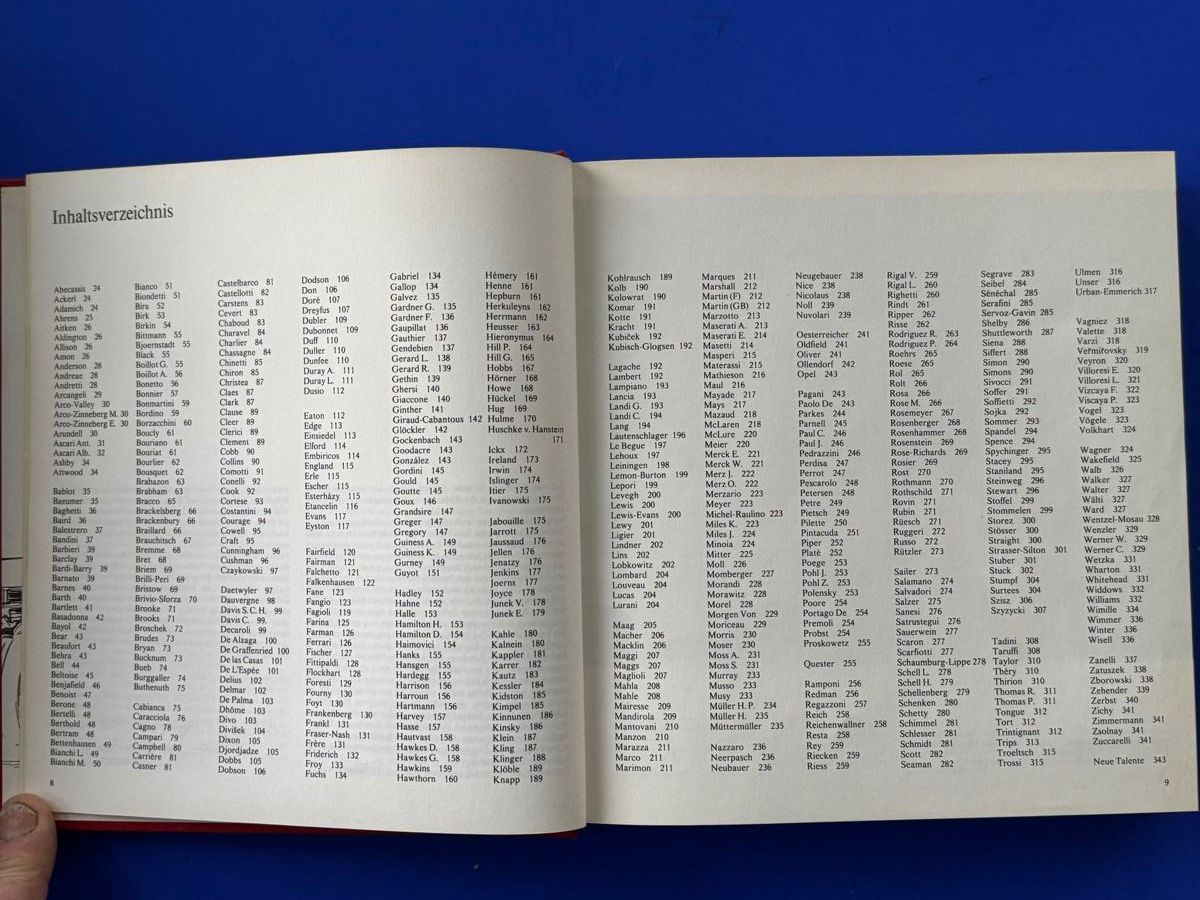 Inhaltsverzeichnis
Abecassis 24
Ackerl 24
Adamich 24
Ahrens 25
Aitken 26
Aldington 26
Allison 26
Amon 26
Anderson 28
Andreae 28
Andretti 28
Arcangeli 29
Arco-Valley 30
Arco-Zinneberg M. 30
Arco-Zinneberg E. 30
Arundell 30
Ascari Ant. 31
Ascari Alb. 32
Ashby 34
Attwood 34
Bablot 35
Baeumer 35
Baghetti 36
Baird 36
Balestrero 37
Bandini 37
Barbieri 39
Barclay 39
Bardi-Barry 39
Barnato 39
Barnes 40
Barth 40
Bartlett 41
Basadonna 42
Bayol 42
Bear 43
Beaufort 43
Behra 43
Bell 44
Beltoise 45
Benjafield 46
Benoist 47
Berone 48
Bertelli 48
Berthold 48
Bertram 48
Bettenhausen 49
Bianchi L. 49
Bianchi M. 50
Bianco 51
Biondetti 51
Bira 52
Birk 53
Birkin 54
Bittmann 55
Bjoernstadt 55
Black 55
Boillot G. 55
Boillot A. 56
Bonetto 56
Bonnier 57
Bonmartini 59
Bordino 59
Borzacchini 60
Boucly 61
Bouriano 61
Bouriat 61
Bourlier 62
Bousquet 62
Brabazon 63
Brabham 63
Bracco 65
Brackelsberg 66
Brackenbury 66
Braillard 66
Brauchitsch 67
Bremme 68
Bret 68
Briem 69
Brilli-Peri 69
Bristow 69
Brivio-Sforza 70
Brooke 71
Brooks 71
Broschek 72
Brudes 73
Bryan 73
Bucknum 73
Bueb 74
Burggaller 74
Buthenuth 75
Cabianca 75
Caracciola 76
Cagno 78
Campari 79
Campbell 80
Carrière 81
Casner 81
Castelbarco 81
Castellotti 82
Carstens 83
Cevert 83
Chaboud 83
Charavel 84
Charlier 84
Chassagne 84
Chinetti 85
Chiron 85
Christea 87
Claes 87
Clark 87
Clause 89
Cleer 89
Clerici 89
Clement 89
Cobb 90
Collins 90
Comotti 91
Conelli 92
Cook 92
Cortese 93
Costantini 94
Courage 94
Cowell 95
Craft 95
Cunningham 96
Cushman 96
Czaykowski 97
Daetwyler 97
Dauvergne 98
Davis S. C. H. 99
Davis C. 99
Decaroli 99
De Alzaga 100
De Graffenried 100
De las Casas 101
De L'Espée 101
Delius 102
Delmar 102
De Palma 103
Dhôme 103
Divo 103
Divišek 104
Dixon 105
Djordjadze 105
Dobbs 105
Dobson 106
Dodson 106
Don 106
Doré 107
Dreyfus 107
Dubler 109
Dubonnet 109
Duff 110
Duller 110
Dunfee 110
Duray A. 111
Duray L. 111
Dusio 112
Eaton 112
Edge 113
Einsiedel 113
Elford 114
Embiricos 114
England 115
Erle 115
Escher 115
Esterházy 115
Etancelin 116
Evans 117
Eyston 117
Fairfield 120
Fairman 121
Falchetto 121
Falkenhausen 122
Fane 123
Fangio 123
Farina 125
Farman 126
Ferrari 126
Fischer 127
Fittipaldi 128
Flockhart 128
Foresti 129
Fourny 130
Foyt 130
Frankenberg 130
Frankl 131
Fraser-Nash 131
Frère 131
Friderich 132
Froy 133
Fuchs 134
Gabriel 134
Gallop 134
Galvez 135
Gardner G. 135
Gardner F. 136
Gaupillat 136
Gauthier 137
Gendebien 137
Gerard L. 138
Gerard R. 139
Gethin 139
Ghersi 140
Giaccone 140
Ginther 141
Giraud-Cabantous 142
Glöckler 142
Gockenbach 143
Goodacre 143
González 143
Gordini 145
Gould 145
Goutte 145
Goux 146
Grandsire 147
Greger 147
Gregory 147
Guiness A. 149
Guiness K. 149
Gurney 149
Guyot 151
Hadley 152
Hahne 152
Halle 153
Hamilton H. 153
Hamilton D. 154
Haimovici 154
Hanks 155
Hansgen 155
Hardegg 155
Harrison 156
Harroun 156
Hartmann 156
Harvey 157
Hasse 157
Hautvast 158
Hawkes D. 158
Hawkes G. 158
Hawkins 159
Hawthorn 160
Hémery 161
Henne 161
Hepburn 161
Herkuleyns 162
Herrmann 162
Heusser 163
Hieronymus 164
Hill P. 164
Hill G. 165
Hobbs 167
Hörner 168
Howe 168
Hückel 169
Hug 169
Hulme 170
Huschke v. Hanstein
171
Ickx 172
Ireland 173
Irwin 174
Islinger 174
Itier 175
Ivanowski 175
Jabouille 175
Jarrott 175
Jaussaud 176
Jellen 176
Jenatzy 176
Jenkins 177
Joerns 177
Joyce 178
Junek V. 178
Junek E. 179
Kahle 180
Kalnein 180
Kappler 181
Karrer 182
Kautz 183
Kessler 184
Kidston 185
Kimpel 185
Kinnunen 186
Kinsky 186
Klein 187
Kling 187
Klinger 188
Klöble 189
Knapp 189
8
Kohlrausch 189
Kolb 190
Kolowrat 190
Komar 191
Kotte 191
Kracht 191
Kubiček 192
Kubisch-Glogsen 192
Lagache 192
Lambert 192
Lampiano 193
Lancia 193
Landi G. 193
Landi C. 194
Lang 194
Lautenschlager 196
Le Begue 197
Lehoux 197
Leiningen 198
Lemon-Burton 199
Lepori 199
Levegh 200
Lewis 200
Lewis-Evans 200
Lewy 201
Ligier 201
Lindner 202
Lins 202
Lobkowitz 202
Lombard 204
Louveau 204
Lucas 204
Lurani 204
Maag 205
Macher 206
Macklin 206
Maggi 207
Maggs 207
Maglioli 207
Mahla 208
Mahle 208
Mairesse 209
Mandirola 209
Mantovani 210
Manzon 210
Marazza 211
Marco 211
Marimon 211
Marques 211
Marshall 212
Martin (F) 212
Martin (GB) 212
Marzotto 213
Maserati A. 213
Maserati E. 214
Masetti 214
Masperi 215
Materassi 215
Mathieson 216
Maul 216
Mayade 217
Mays 217
Mazaud 218
McLaren 218
McLure 220
Meier 220
Merck E. 221
Merck W. 221
Merz J. 222
Merz O. 222
Merzario 223
Meyer 223
Michel-Raulino 223
Miles K. 223
Miles J. 224
Minoia 224
Mitter 225
Moll 226
Momberger 227
Morandi 228
Morawitz 228
Morel 228
Morgen Von 229
Moriceau 229
Morris 230
Moser 230
Moss A. 231
Moss S. 231
Murray 233
Musso 233
Musy 233
Müller H. P. 234
Müller H. 235
Müttermüller 235
Nazzaro 236
Neerpasch 236
Neubauer 236
Neugebauer 238
Nice 238
Nicolaus 238
Noll 239
Nuvolari 239
Oesterreicher 241
Oldfield 241
Oliver 241
Ollendorf 242
Opel 243
Pagani 243
Paolo De 243
Parkes 244
Parnell 245
Paul C. 246
Paul J. 246
Pedrazzini 246
Perdisa 247
Perrot 247
Pescarolo 248
Petersen 248
Petre 249
Pietsch 249
Pilette 250
Pintacuda 251
Piper 252
Platè 252
Poege 253
Pohl J. 253
Pohl Z. 253
Polensky 253
Poore 254
Portago De 254
Premoli 254
Probst 254
Proskowetz 255
Quester 255
Ramponi 256
Redman 256
Regazzoni 257
Reich 258
Reichenwallner 258
Resta 258
Rey 259
Riecken 259
Riess 259
Rigal V. 259
Rigal L. 260
Righetti 260
Rindt 261
Ripper 262
Risse 262
Rodriguez R. 263
Rodriguez P. 264
Roehrs 265
Roese 265
Rol 265
Rolt 266
Rosa 266
Rose M. 266
Rosemeyer 267
Rosenberger 268
Rosenhammer 268
Rosenstein 269
Rose-Richards 269
Rosier 269
Rost 270
Rothmann 270
Rothschild 271
Rovin 271
Rubin 271
Rüesch 271
Ruggeri 272
Russo 272
Rützler 273
Sailer 273
Salamano 274
Salvadori 274
Salzer 275
Sanesi 276
Satrustegui 276
Sauerwein 277
Scaron 277
Scarfiotti 277
Schaumburg-Lippe 278
Schell L. 278
Schell H. 279
Schellenberg 279
Schenken 280
Schetty 280
Schimmel 281
Schlesser 281
Schmidt 281
Scott 282
Seaman 282
Segrave 283
Seibel 284
Sénéchal 285
Serafini 285
Servoz-Gavin 285
Shelby 286
Shuttleworth 287
Siena 288
Siffert 288
Simon 290
Simons 290
Sivocci 291
Soffer 291
Soffietti 292
Sojka 292
Sommer 293
Spandel 294
Spence 294
Spychinger 295
Stacey 295
Staniland 295
Steinweg 296
Stewart 296
Stoffel 299
Stommelen 299
Storez 300
Stösser 300
Straight 300
Strasser-Silton 301
Stuber 301
Stuck 302
Stumpf 304
Surtees 304
Szisz 306
Szyzycki 307
Tadini 308
Taruffi 308
Taylor 310
Théry 310
Thirion 310
Thomas R. 311
Thomas P. 311
Tongue 312
Tort 312
Trintignant 312
Trips 313
Troeltsch 315
Trossi 315
Ulmen 316
Unser 316
Urban-Emmerich 317
Vagniez 318
Valette 318
Varzi 318
Veřmiřovsky 319
Veyron 320
Villoresi E. 320
Villoresi L. 321
Vizcaya F. 322
Viscaya P. 323
Vogel 323
Vögele 323
Volkhart 324
Wagner 324
Wakefield 325
Walb 326
Walker 327
Walter 327
Wälti 327
Ward 327
Wentzel-Mosau 328
Wenzler 329
Werner W. 329
Werner C. 329
Wetzka 331
Wharton 331
Whitehead 331
Widdows 332
Williams 332
Wimille 334
Wimmer 336
Winter 336
Wisell 336
Zanelli 337
Zatuszek 338
Zborowski 338
Zehender 339
Zerbst 340
Zichy 341
Zimmermann 341
Zsolnay 341
Zuccarelli 341
Neue Talente 343
9